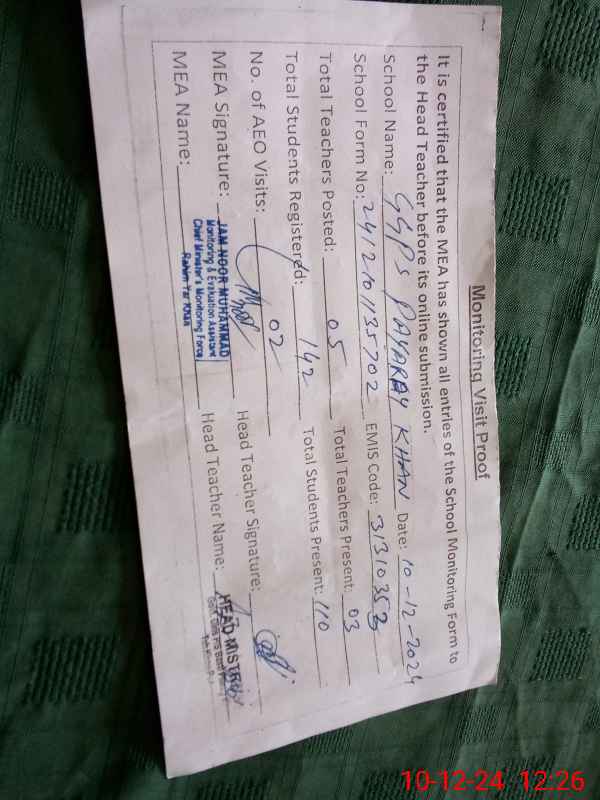 Monitoring Visit Proof
It is certified that the MEA has shown all entries of the School Monitoring Form to
the Head Teacher before its online submission.
School Name: GGPS PAYARAY KHAN Date: 10-12-2024
School Form No: 2412101135702 EMIS Code: 31310353
Total Teachers Posted: 05 Total Teachers Present: 03
Total Students Registered: 142 Total Students Present: 110
No. of AEO Visits: 02
MEA Signature: Head Teacher Signature:
MEA Name: Head Teacher Name:
JAM NOOR MUHAMMAD
Monitoring & Evaluation Assistant
Chief Minister's Monitoring Force
Rahim Yar Khan
HEAD MISTRESS
10-12-24 12:26